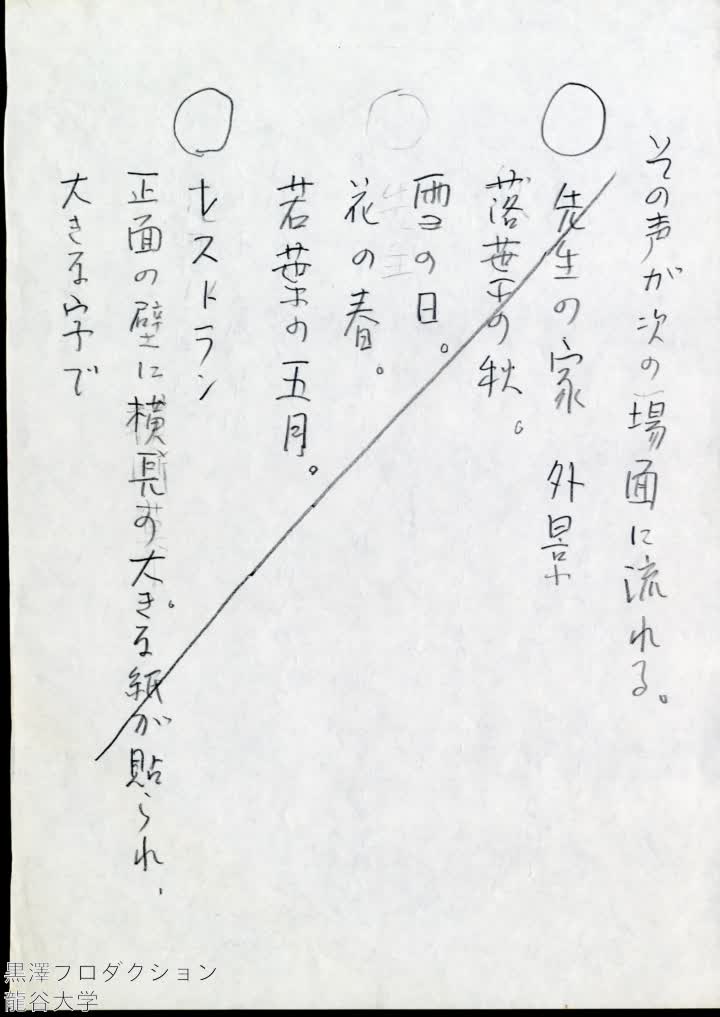 その声が次の場面に流れる。
○先生の家　外景
落葉の秋。
雪の日。
花の春。
若葉の五月。
○レストラン
正面の壁に横長の大きな紙が貼られ、
大きな字で
黒澤プロダクション
龍谷大学